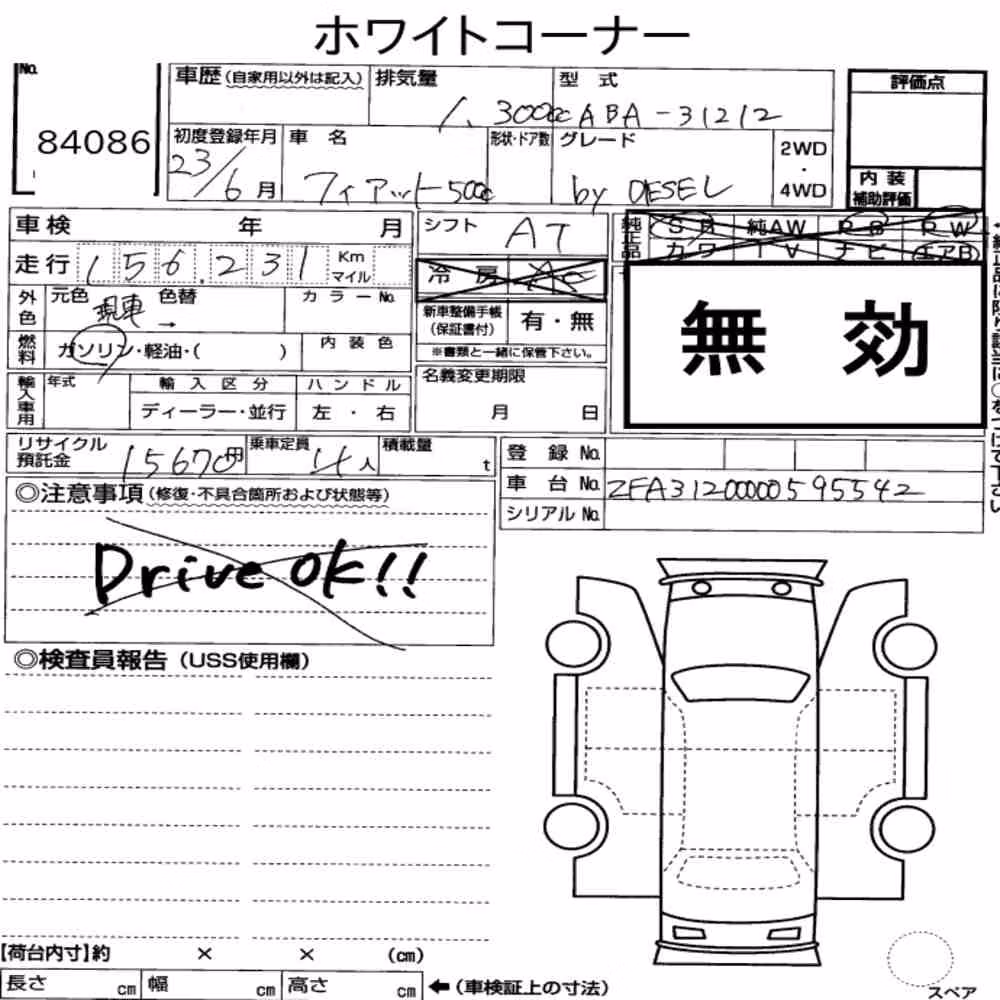 ホワイトコーナー
No. 84086
車歴 (自家用以外は記入) 排気量 1,300cc 型式 ABA-31212
初度登録年月 23/6月 車名 フィアット500c 形状・ドア数 グレード by DIESEL 2WD・4WD
評価点
内装補助評価
車検 年 月 シフト AT
走行 156,231 Km マイル
冷房 AC
純正品 SR 純AW PS PW
カワ TV ナビ エアB
無効
外色 元色 現車 色替 → カラーNo.
新車整備手帳 (保証書付) 有・無
※書類と一緒に保管下さい。
燃料 ガソリン・軽油・( ) 内装色
輸入車用 年式 輸入区分 ハンドル
ディーラー・並行 左・右
名義変更期限 月 日
リサイクル預託金 15670円 乗車定員 4人 積載量 t
登録No.
車台No. ZFA31200000595542
シリアルNo.
◎注意事項 (修復・不具合箇所および状態等)
Drive OK!!
◎検査員報告 (USS使用欄)
【荷台内寸】約 × × (cm)
長さ cm 幅 cm 高さ cm ←(車検証上の寸法)
スペア